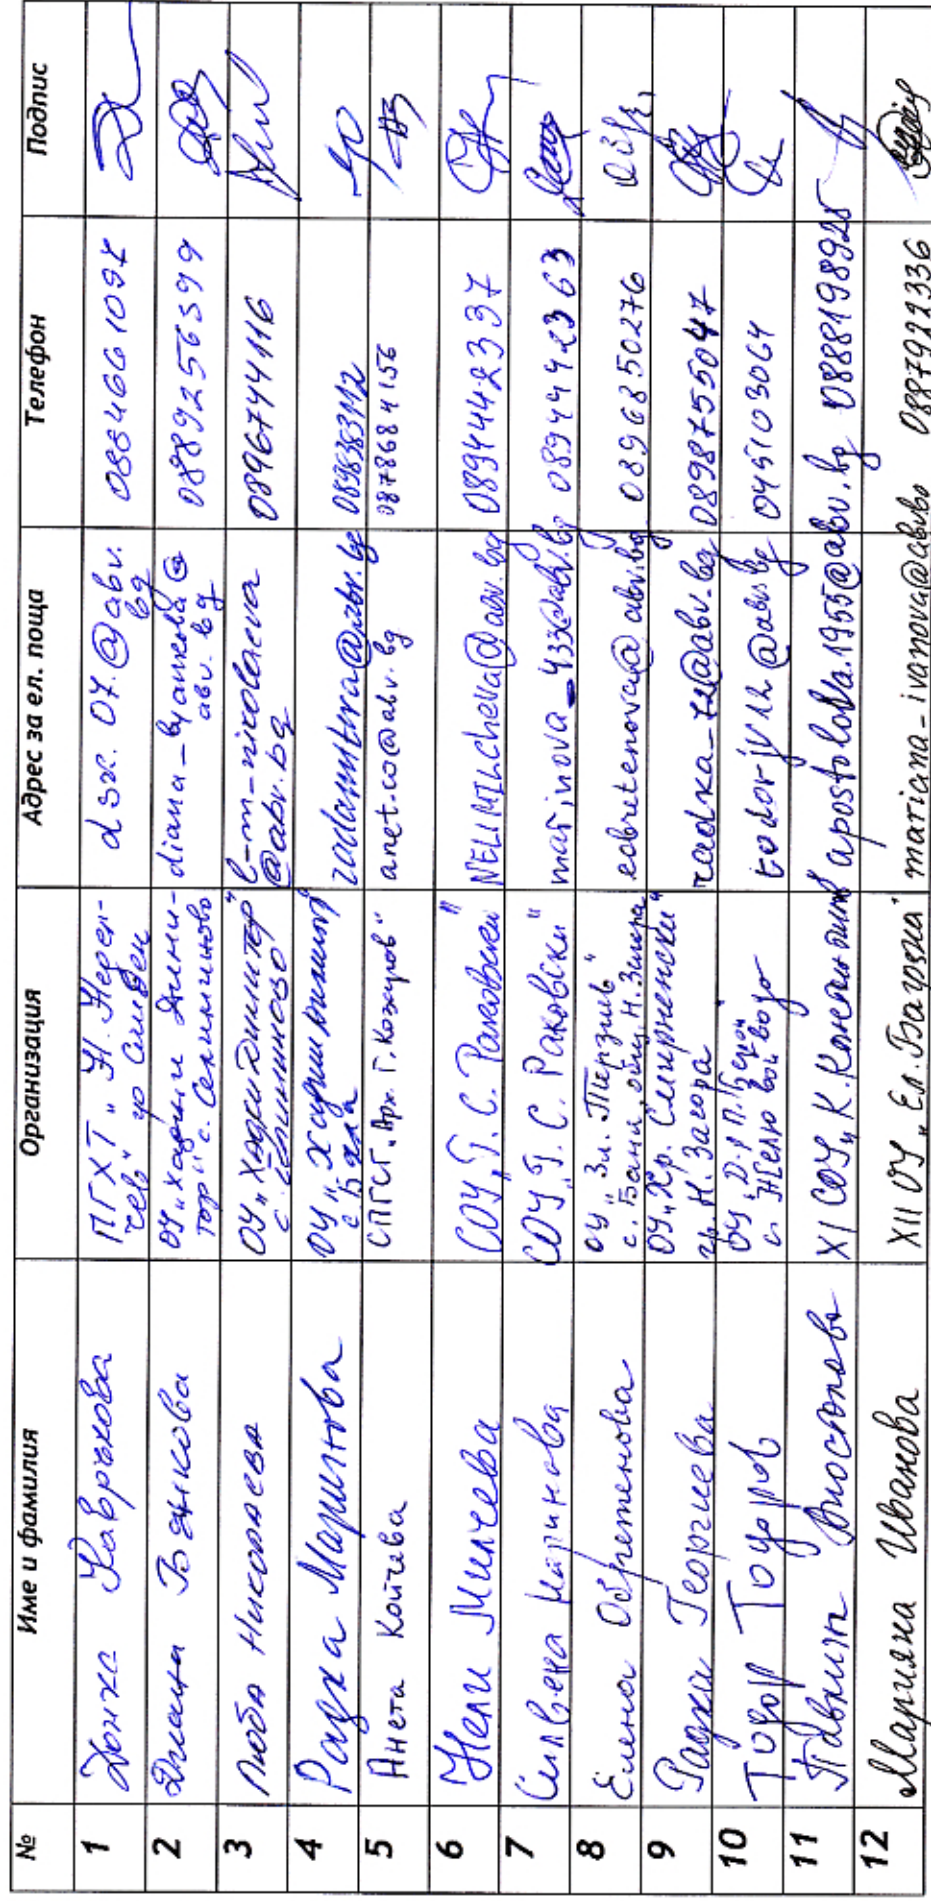 № Име и фамилия Организация Адрес за ел. поща Телефон Подпис
1 Донка Кавръкова ПГХТ "Н. Нерен-
чев" гр Сливен d sk. 07.@abv.
bg 0884661097
2 Диана Божкова ОУ "Хаджи Дими-
тър" с. Селиминово diana_byankova@
abv.bg 0889256599
3 Люба Николаева ОУ "Хаджи Димитър"
с. Селиминово l-m-nikolaeva
@abv.bg 0896744116
4 Радка Маринова ОУ "Хаджи Димитър"
с. Бяла @abv.bg
5 Анета Койчева СПГСГ "Арх. Г. Козаров" anet.co@abv.bg 0878684156
6 Нели Милчева СОУ "Г. С. Раковски" NELIMILcheva@abv.bg 0894442337
7 Силвена Маринова СОУ "Г. С. Раковски" marinova_433@abv.bg 0894442363
8 Елена Обретенова ОУ "Зл. Пързулв"
с. Баня, общ. Н. Загора eobretenova@abv.bg 0896850276
9 Радки Георгиева ОУ "Хр. Смирненски"
гр. Н. Загора radka_72@abv.bg 0898755047
10 Тодор Тодоров ОУ "Д-р П. Берон"
с. Желю войвода @abv.bg 045103064
11 Павлин Апостолов XI СОУ "К. Константин" apostolova.1955@abv.bg 0888198925
12 Марияна Иванова XII ОУ "Ел. Багряна" mariana-ivanova@abvbo 0887922336